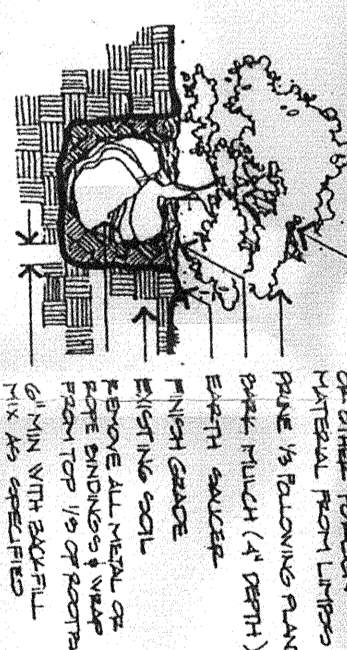 MATERIAL FROM LIMBS
PRUNE 1/3 FOLLOWING PLAN
BARK MULCH (4" DEPTH)
EARTH SAUCER
FINISH GRADE
EXISTING SOIL
REMOVE ALL METAL OR
ROPE BINDINGS & WRAP
FROM TOP 1/3 OF ROOTS
6" MIN WITH BACKFILL
MIX AS SPECIFIED